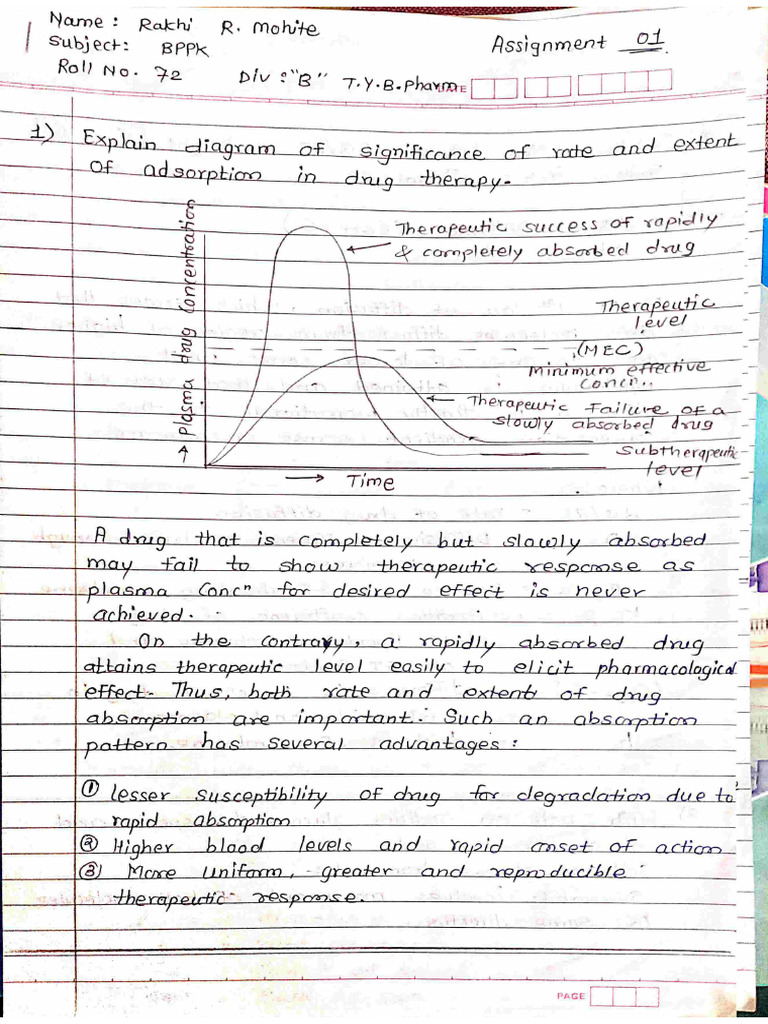 Name : Rakhi R. Mohite
Subject: BPPK
Assignment 01
Roll No. 72 Div : "B" T.Y.B.Pharm
DATE
1) Explain diagram of significance of rate and extent
of adsorption in drug therapy.
→ Plasma drug concentration
Therapeutic success of rapidly
& completely absorbed drug
Therapeutic
level
(MEC)
Minimum effective
concn..
Therapeutic Failure of a
slowly absorbed drug
Subtherapeutic
level
→ Time
A drug that is completely but slowly absorbed
may fail to show therapeutic response as
plasma concⁿ for desired effect is never
achieved.
On the contrary, a rapidly absorbed drug
attains therapeutic level easily to elicit pharmacological
effect. Thus, both rate and extent of drug
absorption are important. Such an absorption
pattern has several advantages :
① lesser susceptibility of drug for degradation due to
rapid absorption
② Higher blood levels and rapid onset of action
③ More uniform, greater and reproducible
therapeutic response.
PAGE